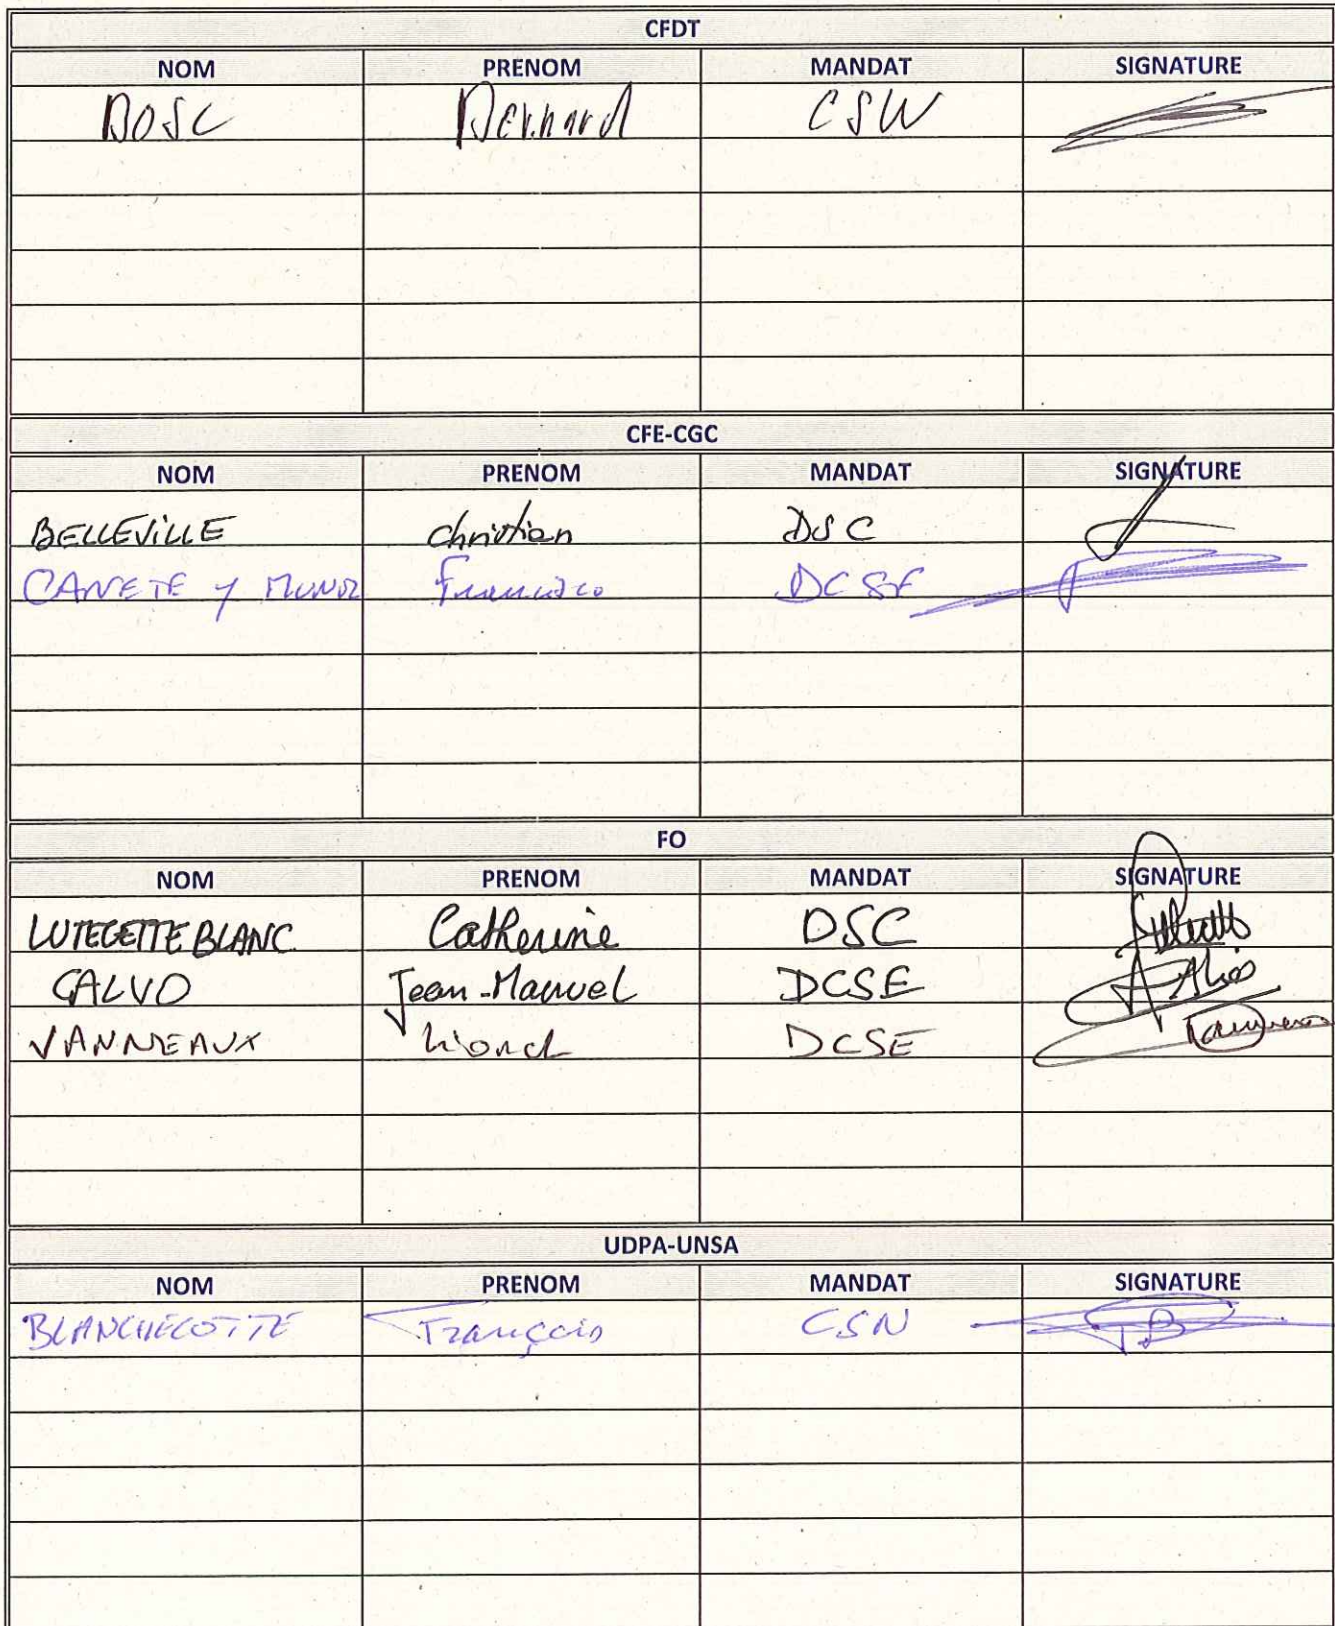 CFDT
NOM PRENOM MANDAT SIGNATURE
BOSC Bernard CSN
CFE-CGC
NOM PRENOM MANDAT SIGNATURE
BELLEVILLE Christian DSC
CANETE Y MUNOZ Francisco DCSE
FO
NOM PRENOM MANDAT SIGNATURE
LUTECETTE BLANC Catherine DSC
CALVO Jean-Manuel DCSE
VANNEAUX Lionel DCSE
UDPA-UNSA
NOM PRENOM MANDAT SIGNATURE
BLANCHECOTTE François CSN